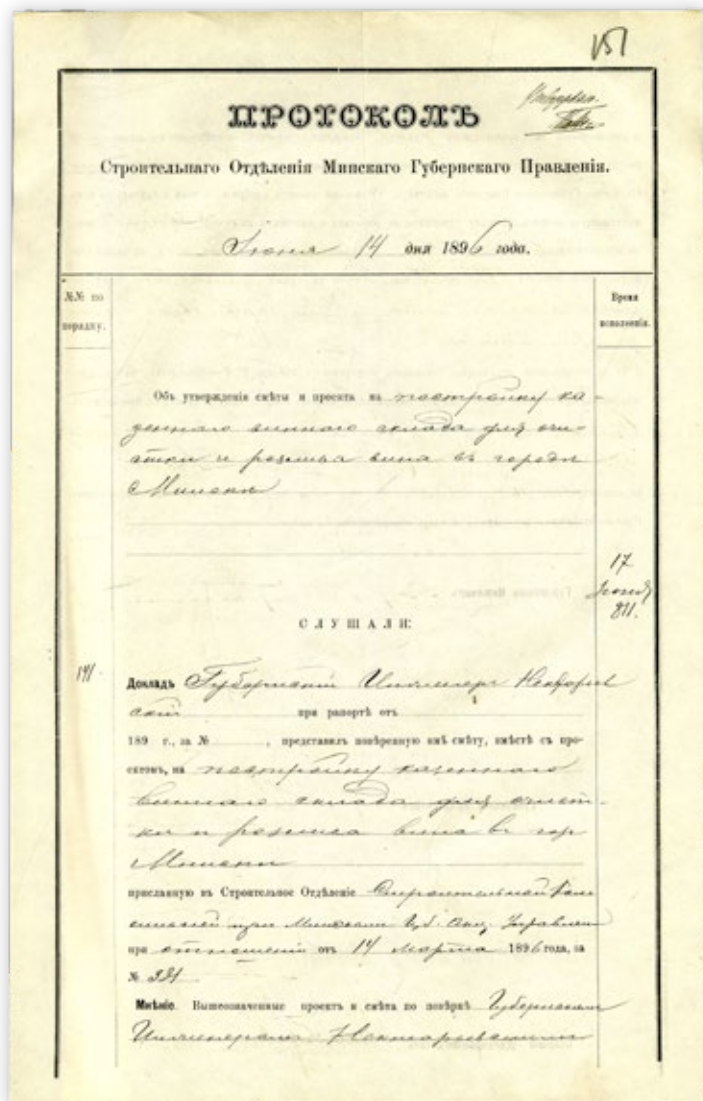 151
ПРОТОКОЛЪ
Строительнаго Отдѣленія Минскаго Губернскаго Правленія.
Іюня 14 дня 1896 года.
№№ по
порядку.
Время
исполненія.
Объ утвержденіи смѣты и проекта на постройку ка-
зеннаго виннаго склада для очи-
стки и розлива вина въ городѣ
Минскѣ
17
Іюня
811.
СЛУШАЛИ:
191.
Докладъ Губернскій Инженеръ
скій при рапортѣ отъ
189 г., за № , представилъ повѣренную имъ смѣту, вмѣстѣ съ про-
ектомъ, на постройку казеннаго
виннаго склада для очист-
ки и розлива вина въ гор
Минскѣ
присланную въ Строительное Отдѣленіе Строительной Ком
миссіей при Минскомъ Губ. Акц. Управлен
при отношеніи отъ 14 Марта 1896 года, за
№ 321
Мнѣніе. Вышеозначенные проектъ и смѣта по повѣркѣ Губернскимъ
Инженеромъ